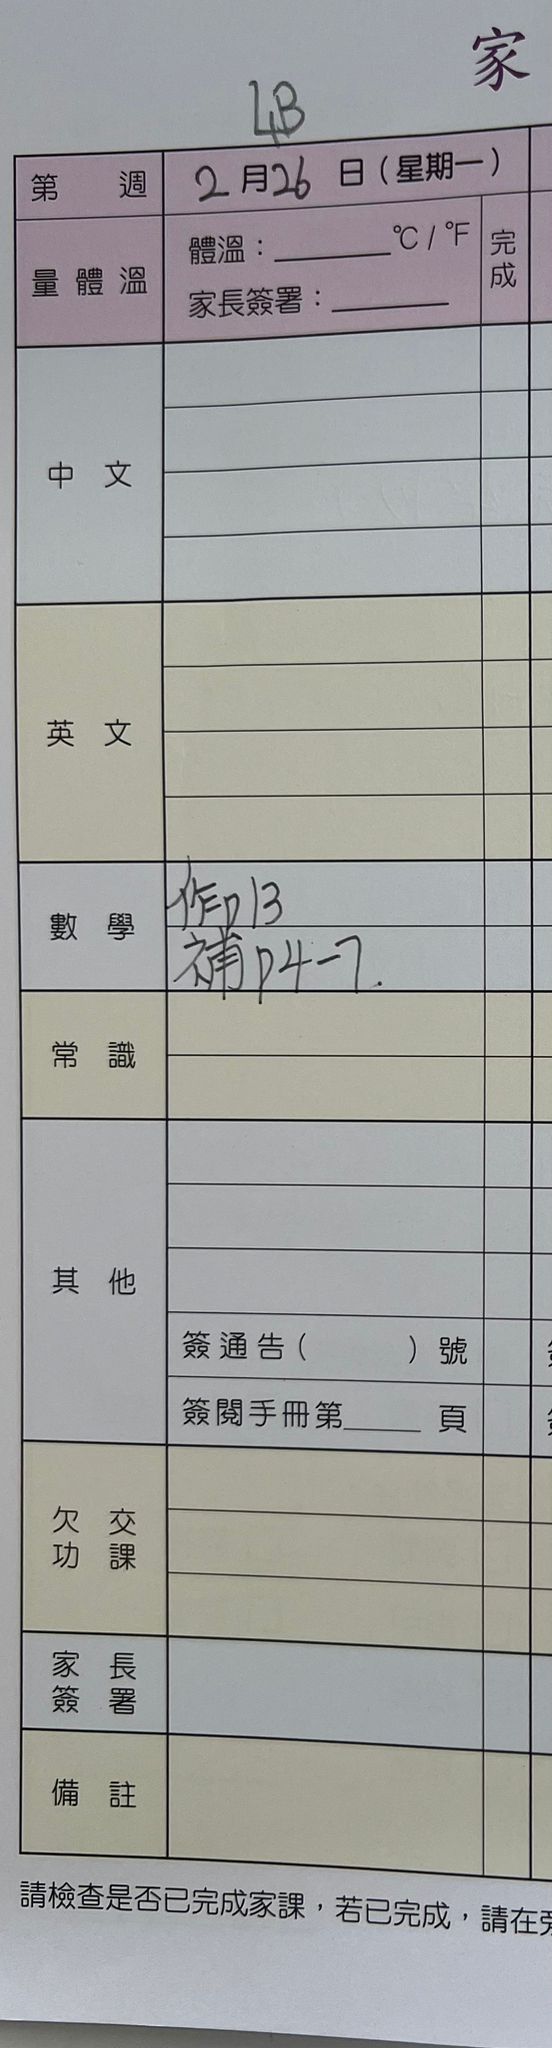 家
4B
第 週 2月26日(星期一)
量體溫 體溫:______℃/℉ 完成
家長簽署:______
中文
英文
數學 作p13
補p4-7.
常識
其他
簽通告( )號
簽閱手冊第____頁
欠交功課
家長簽署
備註
請檢查是否已完成家課,若已完成,請在旁